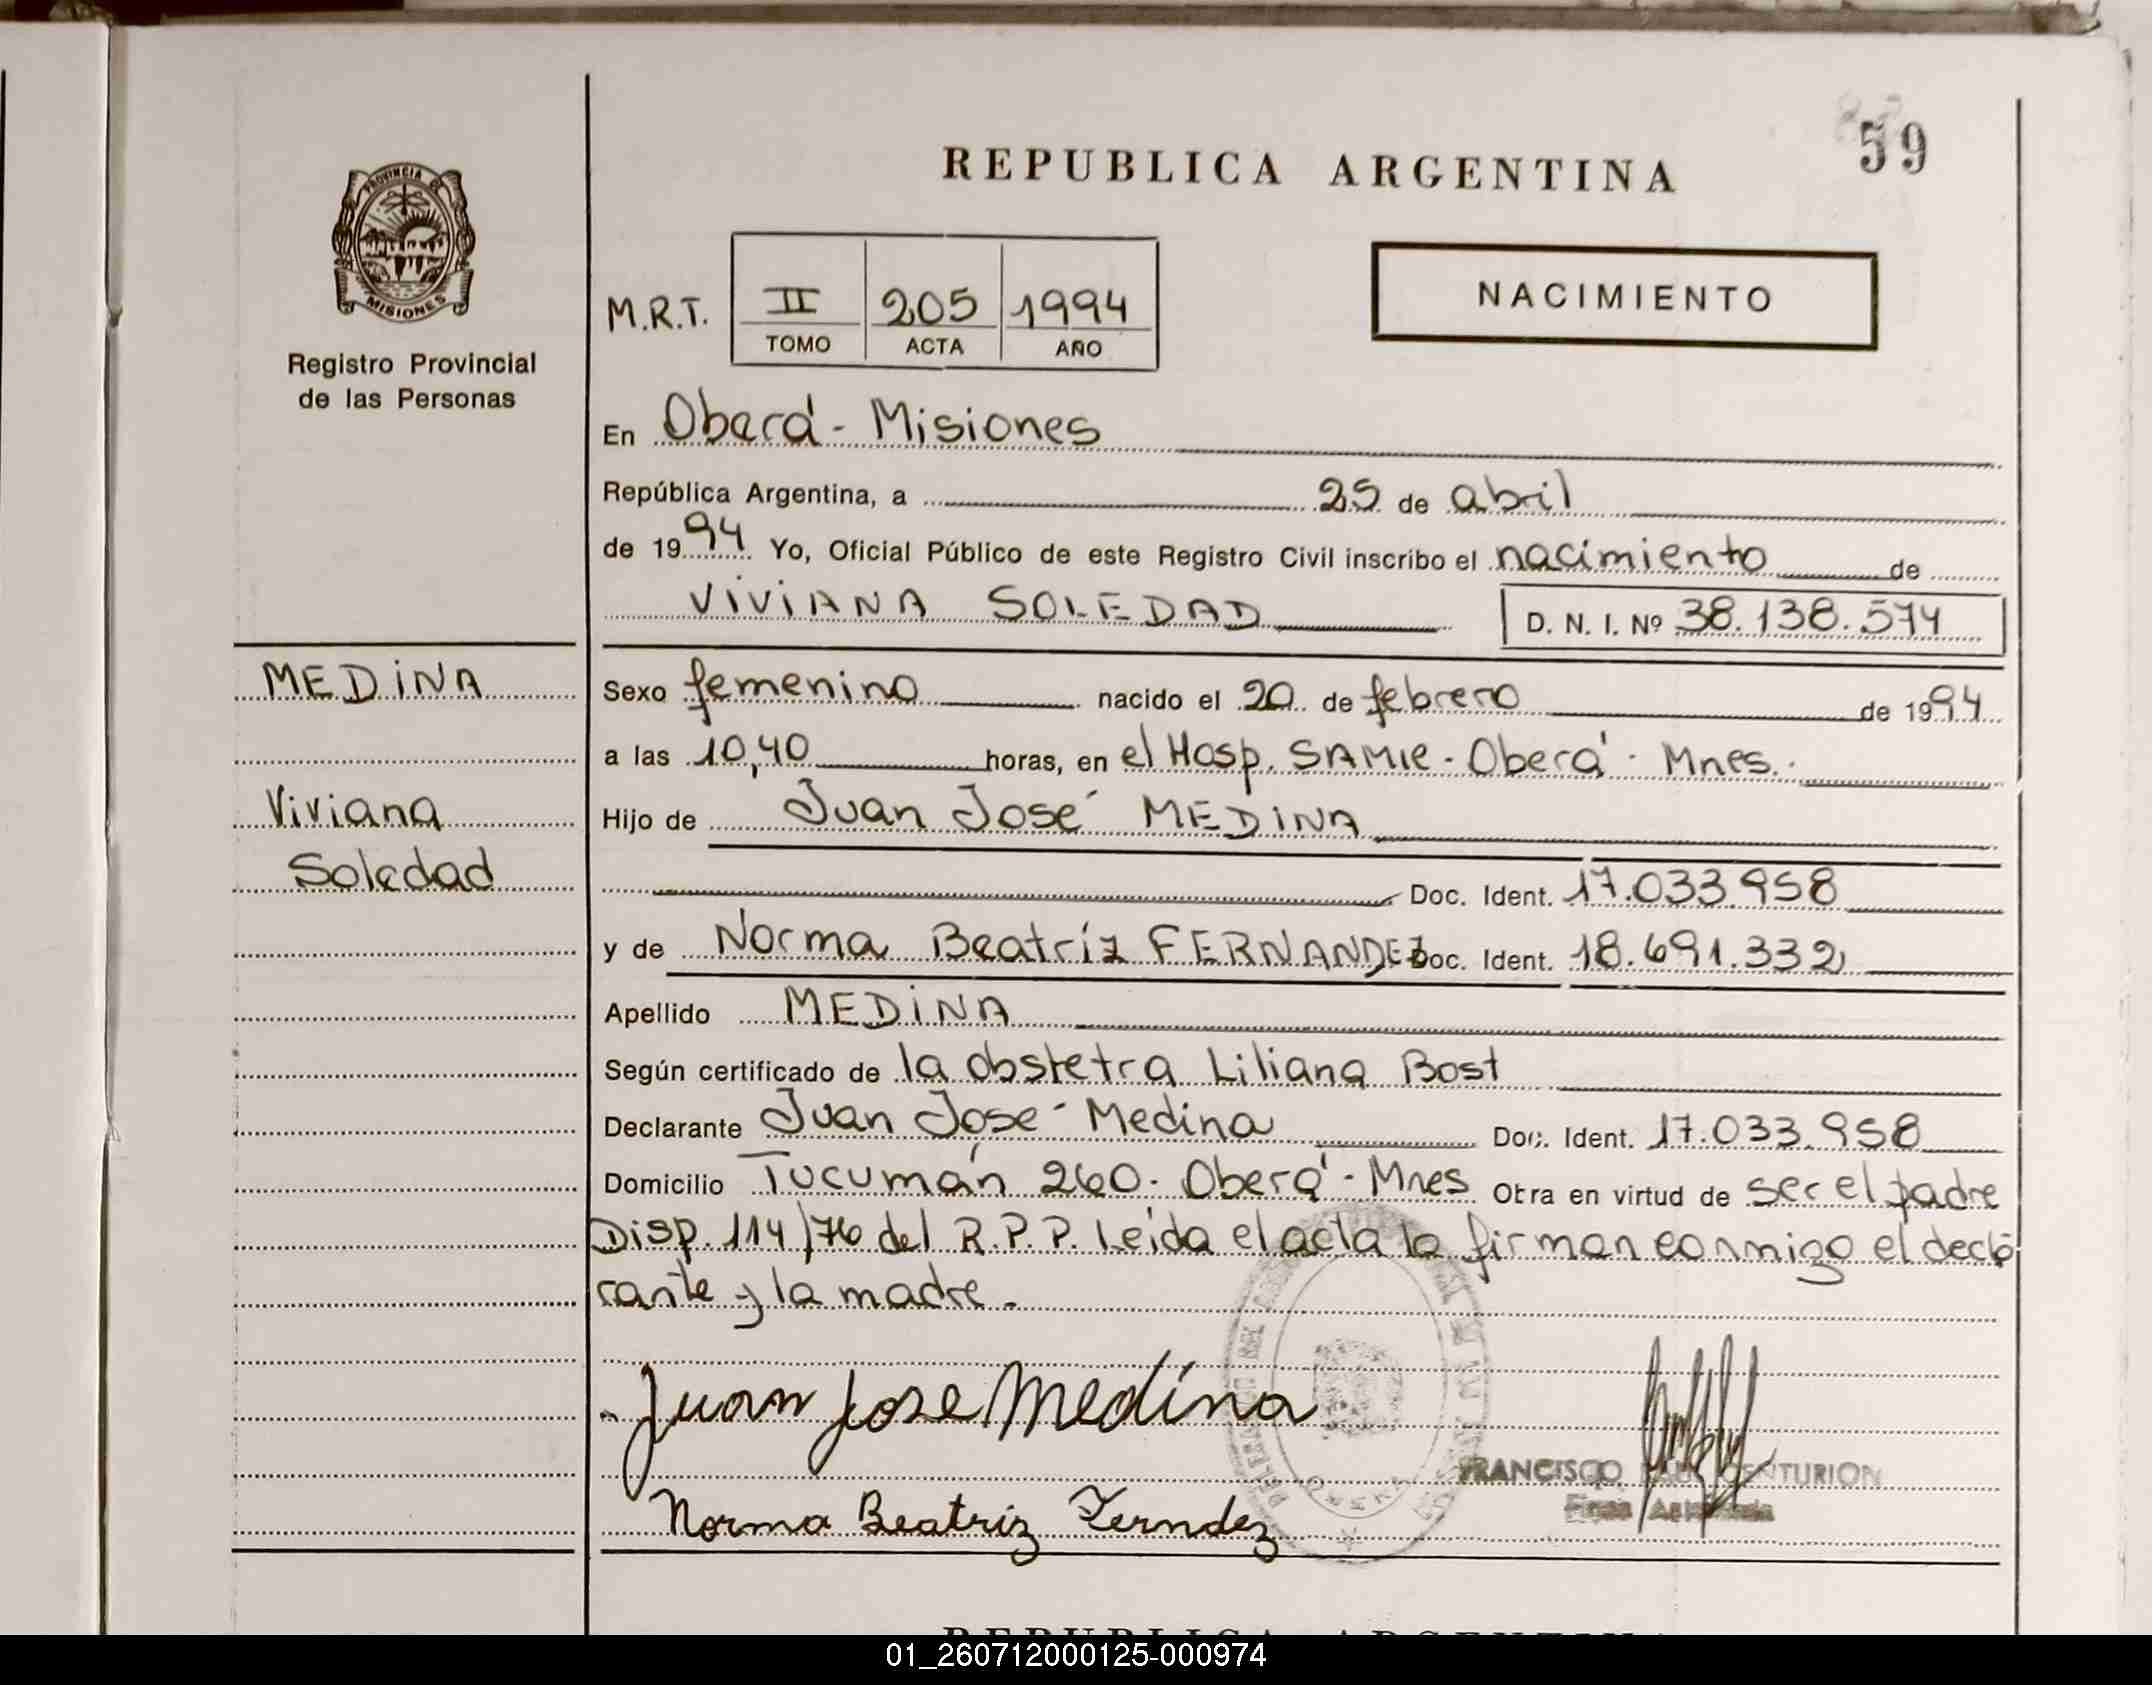 REPUBLICA ARGENTINA
59
PROVINCIA DE
MISIONES
Registro Provincial
de las Personas
M.R.T.
II 205 1994
TOMO ACTA AÑO
NACIMIENTO
En Oberá - Misiones
República Argentina, a 25 de abril
de 1994 Yo, Oficial Público de este Registro Civil inscribo el nacimiento de
VIVIANA SOLEDAD D. N. I. Nº 38.138.574
MEDINA
Viviana
Soledad
Sexo femenino nacido el 20 de febrero de 1994
a las 10,40 horas, en el Hosp. SAMIC - Oberá - Mnes.
Hijo de Juan José MEDINA
Doc. Ident. 17.033.958
y de Norma Beatríz FERNANDEZ Doc. Ident. 18.691.332
Apellido MEDINA
Según certificado de la obstetra Liliana Bost
Declarante Juan José Medina Doc. Ident. 17.033.958
Domicilio Tucumán 260 - Oberá - Mnes Obra en virtud de ser el padre
Disp. 114/76 del R.P.P. Leída el acta la firman conmigo el decla
rante y la madre.
Juan Jose Medina
Norma Beatriz Ferndez
FRANCISCO CENTURION
REPUBLICA ARGENTINA
01_260712000125-000974